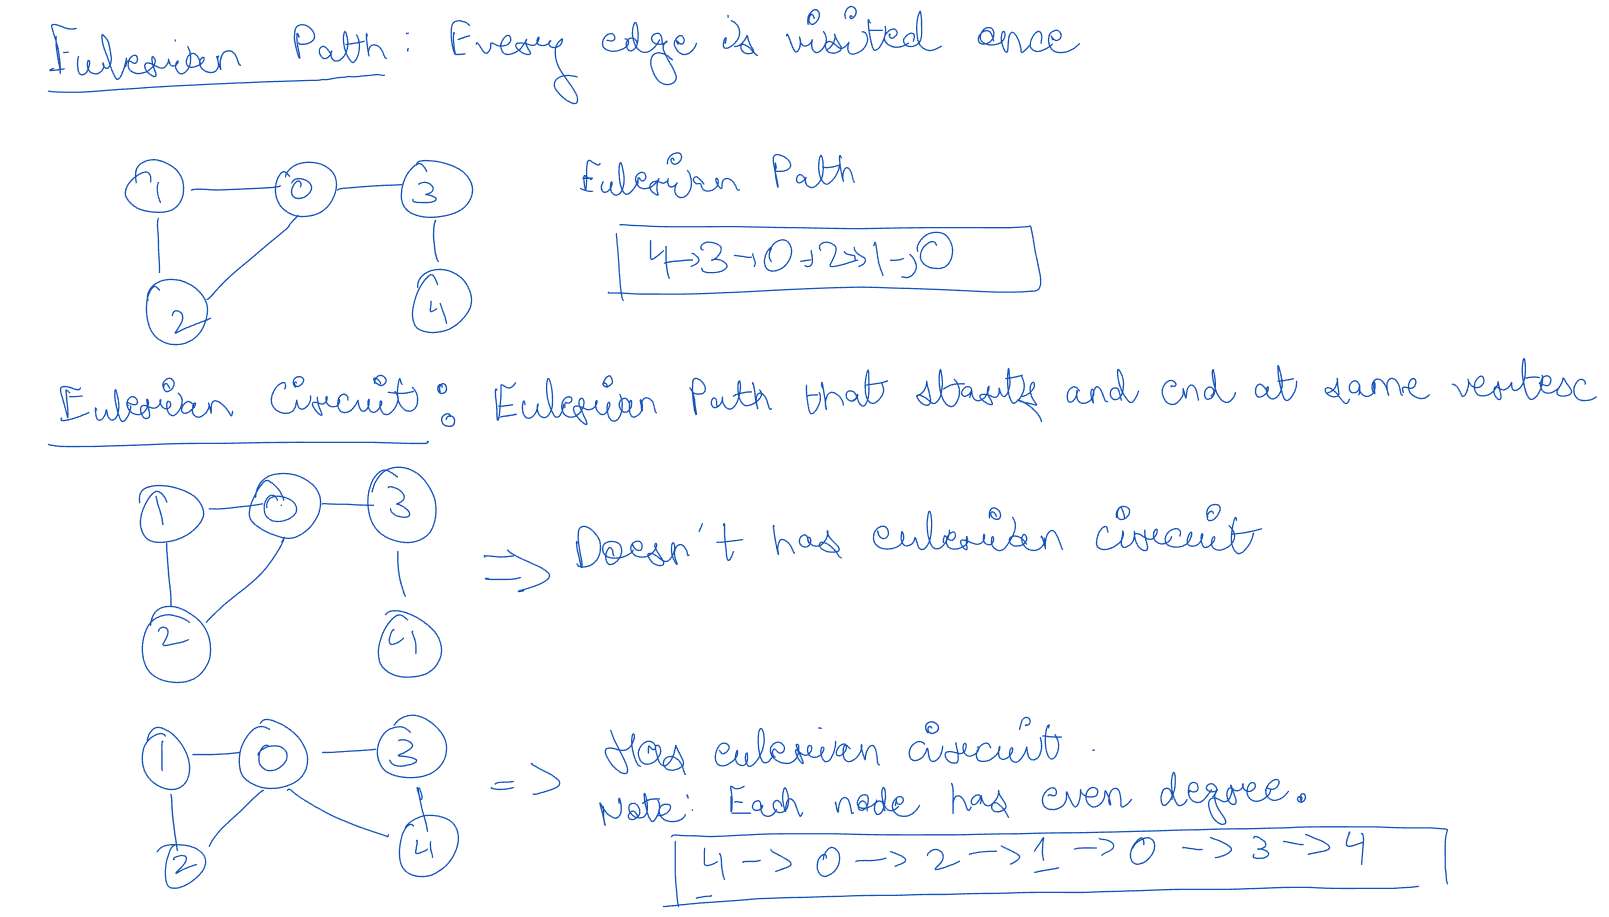 Eulerian Path: Every edge is visited once
1 0 3
Eulerian Path
4->3->0->2->1->0
2 4
Eulerian Circuit: Eulerian Path that starts and end at same vertex
1 0 3
Doesn't has eulerian circuit
2 4
1 0 3
Has eulerian circuit.
Note: Each node has even degree.
2 4
4 -> 0 -> 2 -> 1 -> 0 -> 3 -> 4